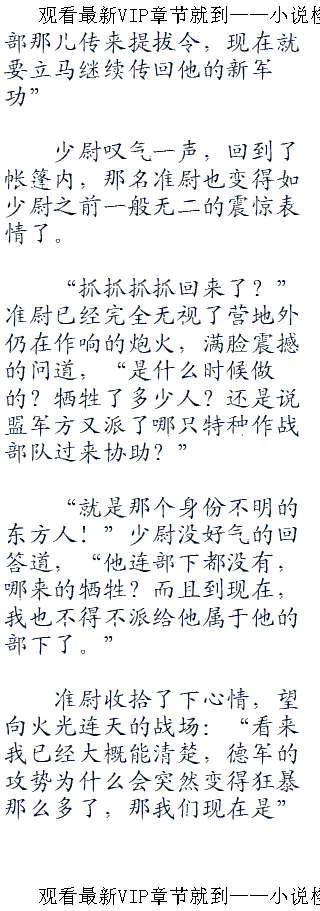 观看最新VIP章节就到——小说
部那儿传来提拔令，现在就
要立马继续传回他的新军
功”
少尉叹气一声，回到了
帐篷内，那名准尉也变得如
少尉之前一般无二的震惊表
情了。
“抓抓抓抓回来了？”
准尉已经完全无视了营地外
仍在作响的炮火，满脸震撼
的问道，“是什么时候做
的？牺牲了多少人？还是说
盟军方又派了哪只特种作战
部队过来协助？”
“就是那个身份不明的
东方人！”少尉没好气的回
答道，“他连部下都没有，
哪来的牺牲？而且到现在，
我也不得不派给他属于他的
部下了。”
准尉收拾了下心情，望
向火光连天的战场：“看来
我已经大概能清楚，德军的
攻势为什么会突然变得狂暴
那么多了，那我们现在是”
观看最新VIP章节就到——小说